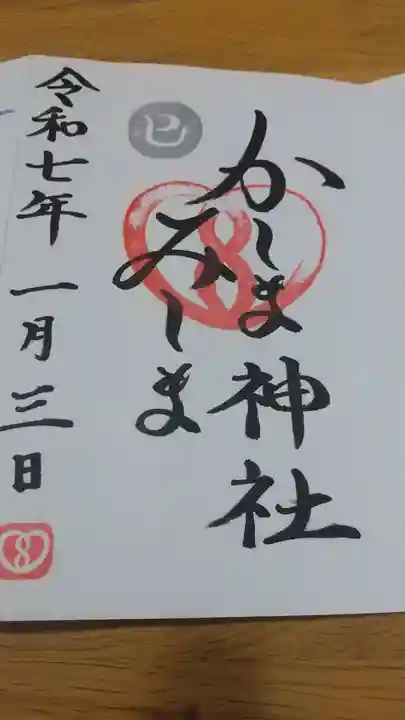 かしま神社
みしま
巳
令和七年 一月 三日